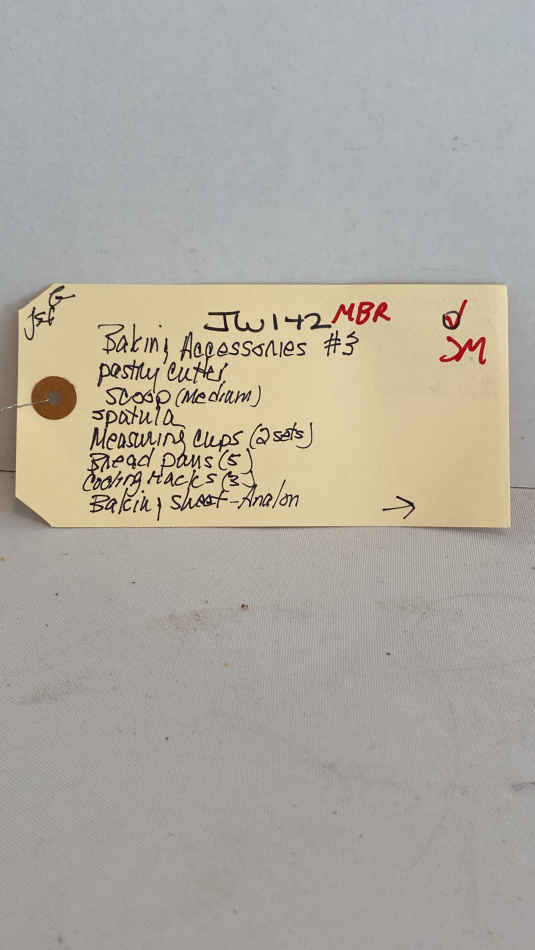 G
JW142 MBR
JM
Baking Accessories #3
pastry cutter
scoop (medium)
spatula
Measuring cups (2 sets)
Bread pans (5)
Cooling racks (3)
Baking sheet-Analon
→